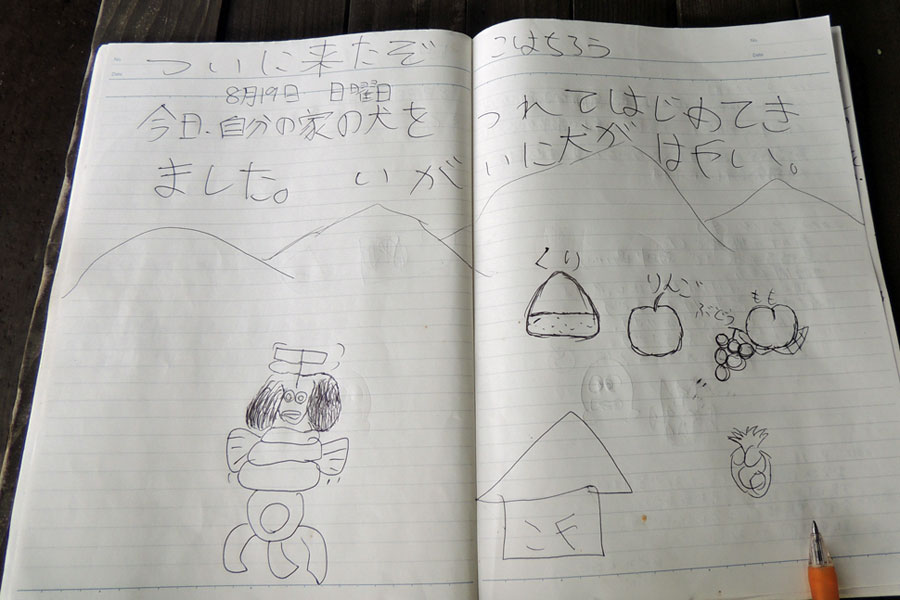 ついに来たぞ こはちろう
8月19日 日曜日
今日、自分の家の犬を つれてはじめてき
ました。 いがいに犬が はやい。
くり
りんご
ぶどう
もも
No.
Date
No.
Date